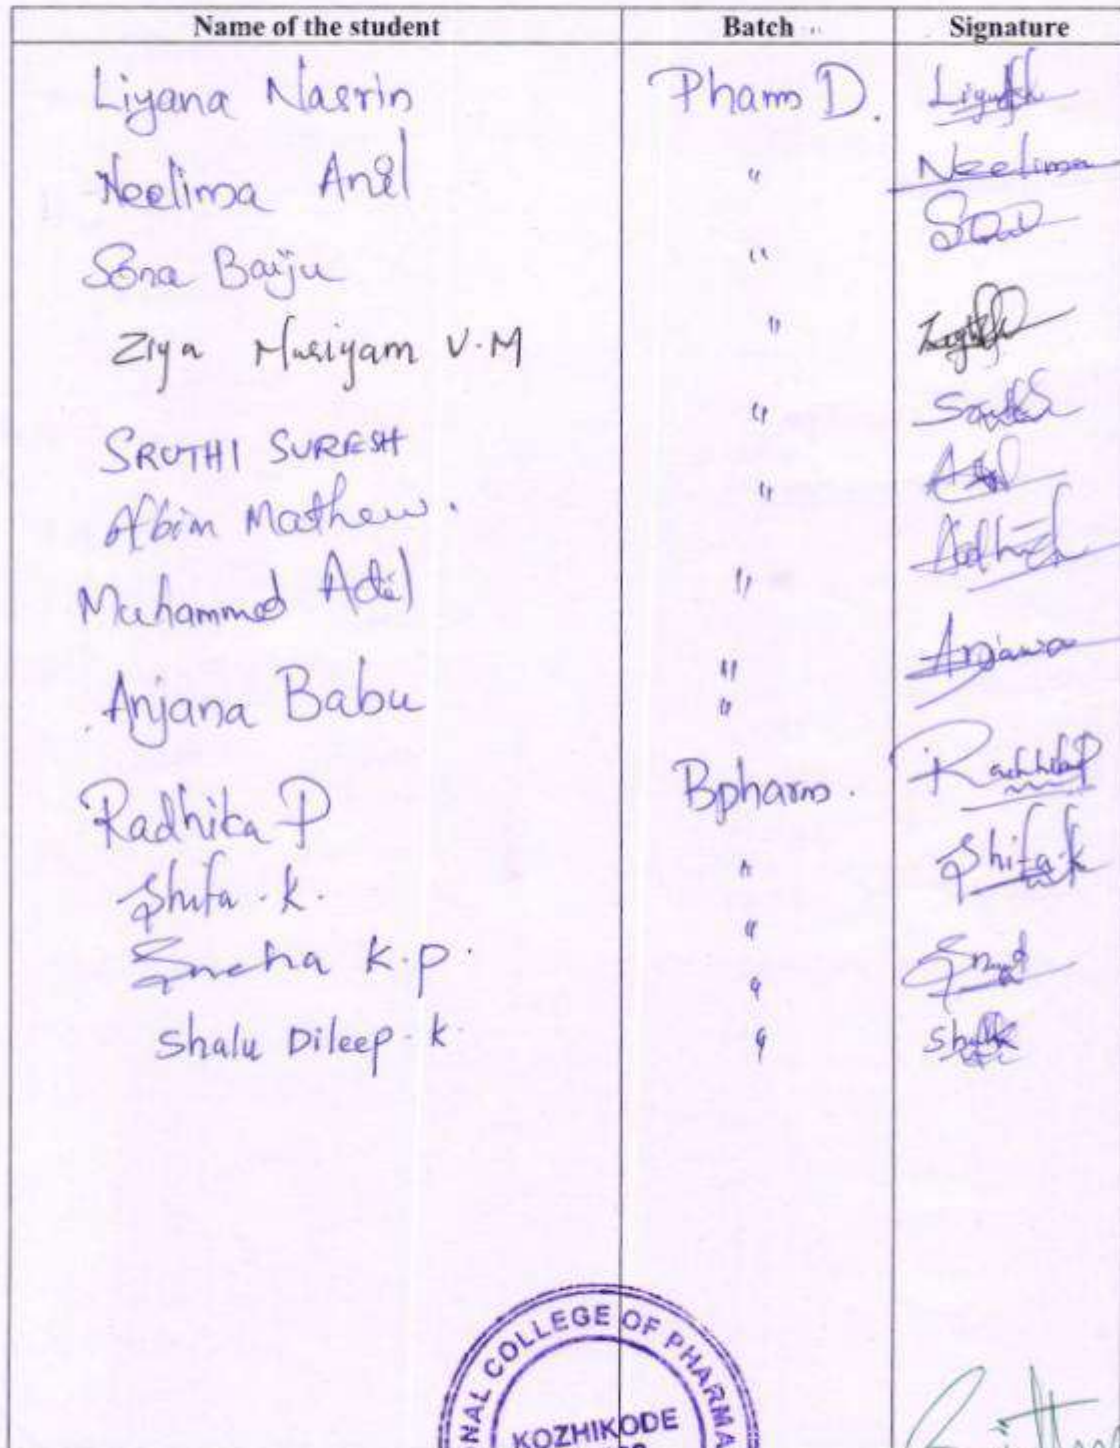 Name of the student Batch Signature
Liyana Nasrin Pharm D.
Neelima Anil " Neelima
Sona Baiju "
Ziya Mariyam V.M "
"
SRUTHI SURESH
Albin Mathew. "
Muhammed Adil "
" Anjana
Anjana Babu "
Radhika P Bpharm.
Shifa . K. " Shifa.k
Sneha K.P. "
"
Shalu Dileep . K. "
NAL COLLEGE OF PHARMA
KOZHIKODE